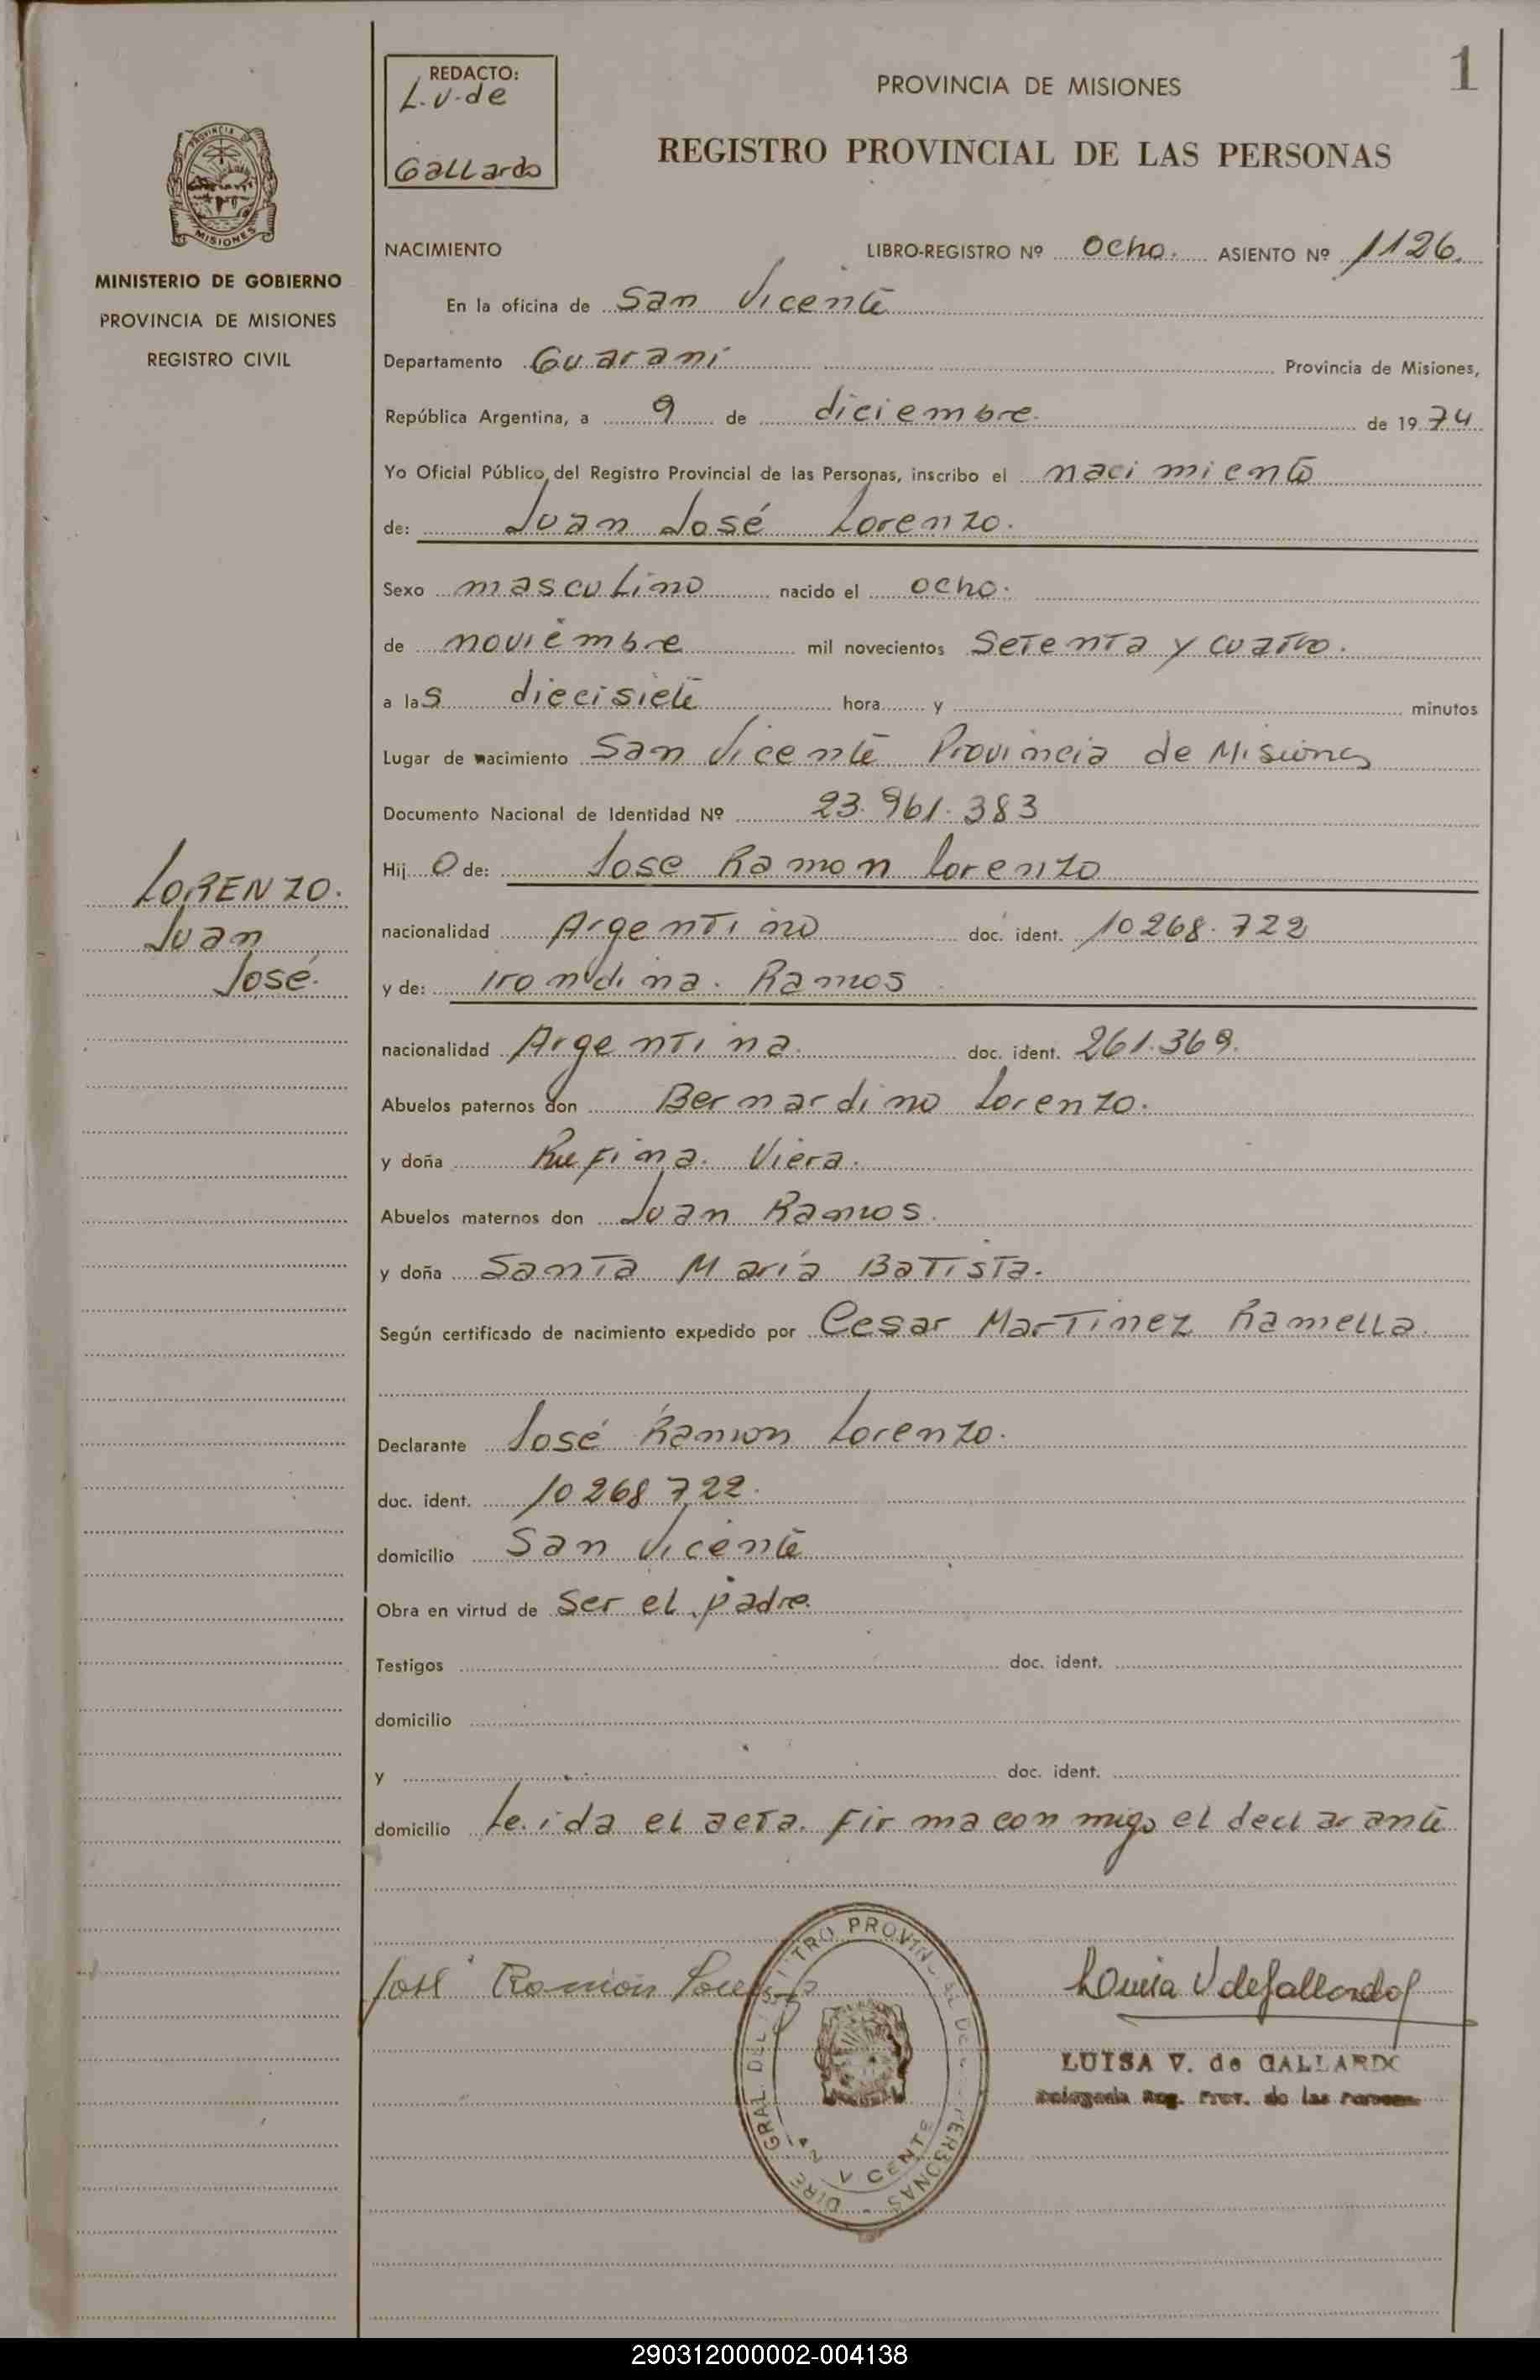 1
REDACTO:
L. V. de
Gallardo
PROVINCIA DE MISIONES
REGISTRO PROVINCIAL DE LAS PERSONAS
PROVINCIA DE
MISIONES
MINISTERIO DE GOBIERNO
PROVINCIA DE MISIONES
REGISTRO CIVIL
NACIMIENTO LIBRO-REGISTRO Nº ocho. ASIENTO Nº 1126.
En la oficina de San Vicente
Departamento Guaraní Provincia de Misiones,
República Argentina, a 9 de diciembre. de 1974
Yo Oficial Público del Registro Provincial de las Personas, inscribo el nacimiento
de: Juan José Lorenzo.
Sexo masculino nacido el ocho.
de noviembre mil novecientos Setenta y cuatro.
a las diecisiete hora y minutos
Lugar de nacimiento San Vicente Provincia de Misiones
Documento Nacional de Identidad Nº 23.961.383
Hij o de: Jose Ramon Lorenzo
nacionalidad Argentino doc. ident. 10268.722
y de: Irondina. Ramos
nacionalidad Argentina. doc. ident. 261.369.
Abuelos paternos don Bernardino Lorenzo.
y doña Rufina. Viera.
Abuelos maternos don Juan Ramos.
y doña Santa María Batista.
Según certificado de nacimiento expedido por Cesar Martinez Ramella.
Declarante José Ramon Lorenzo.
doc. ident. 10268722.
domicilio San Vicente
Obra en virtud de Ser el padre.
Testigos doc. ident.
domicilio
y doc. ident.
domicilio Leida el acta. Firma conmigo el declarante
LORENZO.
Juan
José.
José Ramón Lorenzo
Luisa V de Gallardo
LUISA V. de GALLARDO
Delegada Reg. Prov. de las Personas
290312000002-004138